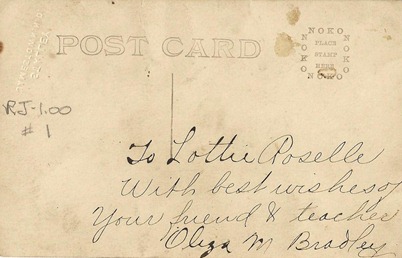 POST CARD
NOKO
NOKO
NOKO
NOKO
PLACE
STAMP
HERE
RJ-1.00
# 1
To Lottie Roselle
With best wishes of
Your friend & teacher
M Bradley